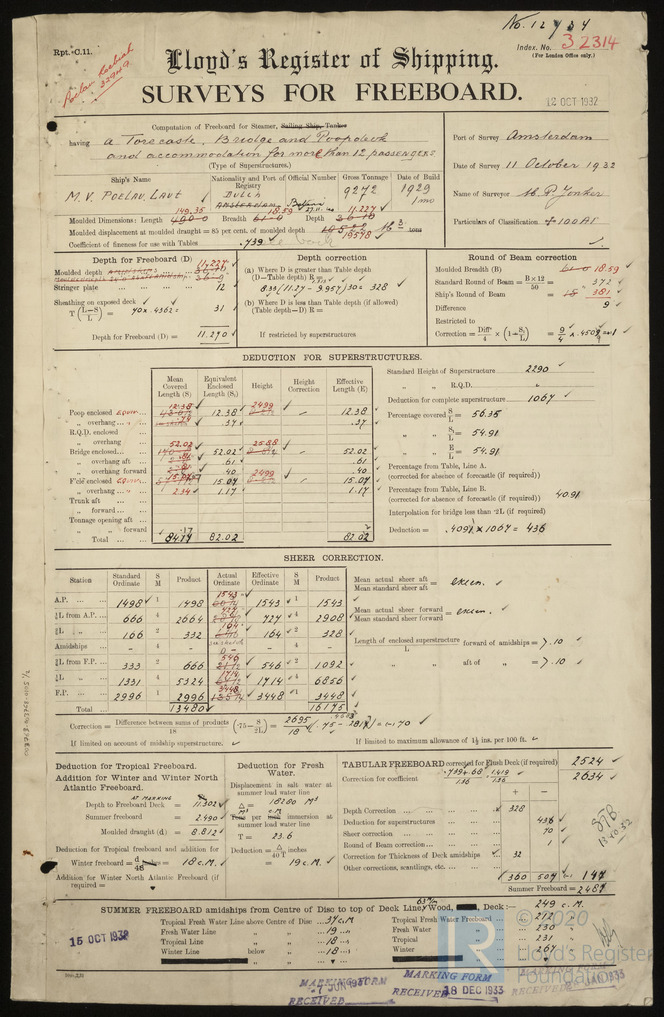 No. 12734
Rpt. C.11.
Index. No. 32314
(For London Office only.)
Lloyd's Register of Shipping.
SURVEYS FOR FREEBOARD.
12 OCT 1932
Computation of Freeboard for Steamer, Sailing Ship, Tanker
having a Forecastle, Bridge and Poopdeck
and accommodation for more than 12 passengers
(Type of Superstructures.)
Port of Survey Amsterdam
Date of Survey 11 October 1932
Name of Surveyor
Particulars of Classification +100A1
Ship's Name
Nationality and Port of Registry
Official Number
Gross Tonnage
Date of Build
M.V. POELAU LAUT
DUTCH
AMSTERDAM
9272
1929
Moulded Dimensions: Length 149.35 Breadth 18.59 Depth 11.227
Moulded displacement at moulded draught = 85 per cent. of moulded depth
Coefficient of fineness for use with Tables .739
Depth for Freeboard (D)
Moulded depth 11.227
Stringer plate 12
Sheathing on exposed deck
T (L-S/L) = 70 x .4362 = 31
Depth for Freeboard (D) = 11.270
Depth correction
(a) Where D is greater than Table depth
(D-Table depth) R =
8.33 (11.27 - 9.957) 30 = 328
(b) Where D is less than Table depth (if allowed)
(Table depth-D) R =
If restricted by superstructures
Round of Beam correction
Moulded Breadth (B) 18.59
Standard Round of Beam = B×12/50 = 372
Ship's Round of Beam = 381
Difference 9
Restricted to
Correction = Diff/4 × (1-S₁/L) = 9/4 × .4509 = 1
DEDUCTION FOR SUPERSTRUCTURES.
Mean Covered Length (S)
Equivalent Enclosed Length (S₁)
Height
Height Correction
Effective Length (E)
Poop enclosed 12.38 12.38 2499 12.38
" overhang .37 .37
R.Q.D. enclosed
" overhang
Bridge enclosed 52.02 52.02 2588 52.02
" overhang aft .61 .61
" overhang forward .40 .40
F'cle enclosed 15.07 15.07 2499 15.07
" overhang 2.34 1.17 1.17
Trunk aft
" forward
Tonnage opening aft
" " forward
Total 84.17 82.02 82.02
Standard Height of Superstructure 2290
" " R.Q.D.
Deduction for complete superstructure 1067
Percentage covered S/L = 56.35
" " S₁/L = 54.91
" " E/L = 54.91
Percentage from Table, Line A.
(corrected for absence of forecastle (if required))
Percentage from Table, Line B. 40.91
(corrected for absence of forecastle (if required))
Interpolation for bridge less than .2L (if required)
Deduction = .4091 x 1067 = 436
SHEER CORRECTION.
Station
Standard Ordinate
S M
Product
Actual Ordinate
Effective Ordinate
S M
Product
A.P. 1498 1 1498 1543 1543 1 1543
⅙L from A.P. 666 4 2664 727 4 2908
⅓L " 166 2 332 164 164 2 328
Amidships - 4 - 0 - 4 -
⅓L from F.P. 333 2 666 546 546 2 1092
⅙L " 1331 4 5324 1714 1714 4 6856
F.P. 2996 1 2996 3448 3448 1 3448
Total 13480 16175
Mean actual sheer aft / Mean standard sheer aft = excess.
Mean actual sheer forward / Mean standard sheer forward = excess.
Length of enclosed superstructure / L forward of amidships = >.10
" " aft of " = >.10
Correction = Difference between sums of products / 18 (.75 - S/2L) = 2695/18 (.75 - .2817) = -70
If limited on account of midship superstructure.
If limited to maximum allowance of 1½ ins. per 100 ft.
Deduction for Tropical Freeboard.
Addition for Winter and Winter North Atlantic Freeboard.
AT MARKING
Depth to Freeboard Deck = 11.302
Summer freeboard = 2.490
Moulded draught (d) = 8.812
Deduction for Tropical freeboard and addition for
Winter freeboard = d/48 = 18 c.M.
Addition for Winter North Atlantic Freeboard (if required) =
Deduction for Fresh Water.
Displacement in salt water at summer load water line
Δ = 18200 M³
Tons per immersion at summer load water line
T = 23.6
Deduction = Δ/40 T
= 19 c.M.
TABULAR FREEBOARD corrected for Flush Deck (if required) 2524
Correction for coefficient .739+.68/1.36 1.419/1.36 2634
+ -
Depth Correction 328
Deduction for superstructures 436
Sheer correction 70
Round of Beam correction 1
Correction for Thickness of Deck amidships 32
Other corrections, scantlings, etc.
360 507 147
Summer Freeboard = 2487
13.10.32
SUMMER FREEBOARD amidships from Centre of Disc to top of Deck Line, Wood, Deck:- 249 c.M.
Tropical Fresh Water Line above Centre of Disc 37 c.M.
Fresh Water Line " " 19 "
Tropical Line " " 18 "
Winter Line below " " 18 "
Tropical Fresh Water Freeboard 212 "
Fresh Water " 230 "
Tropical " 231 "
Winter " 267 "
15 OCT 1932
MARKING FORM
RECEIVED 7 JUN 1933
MARKING FORM
RECEIVED 18 DEC 1933
RECEIVED
© 2020
LR
Lloyd's Register
Foundation